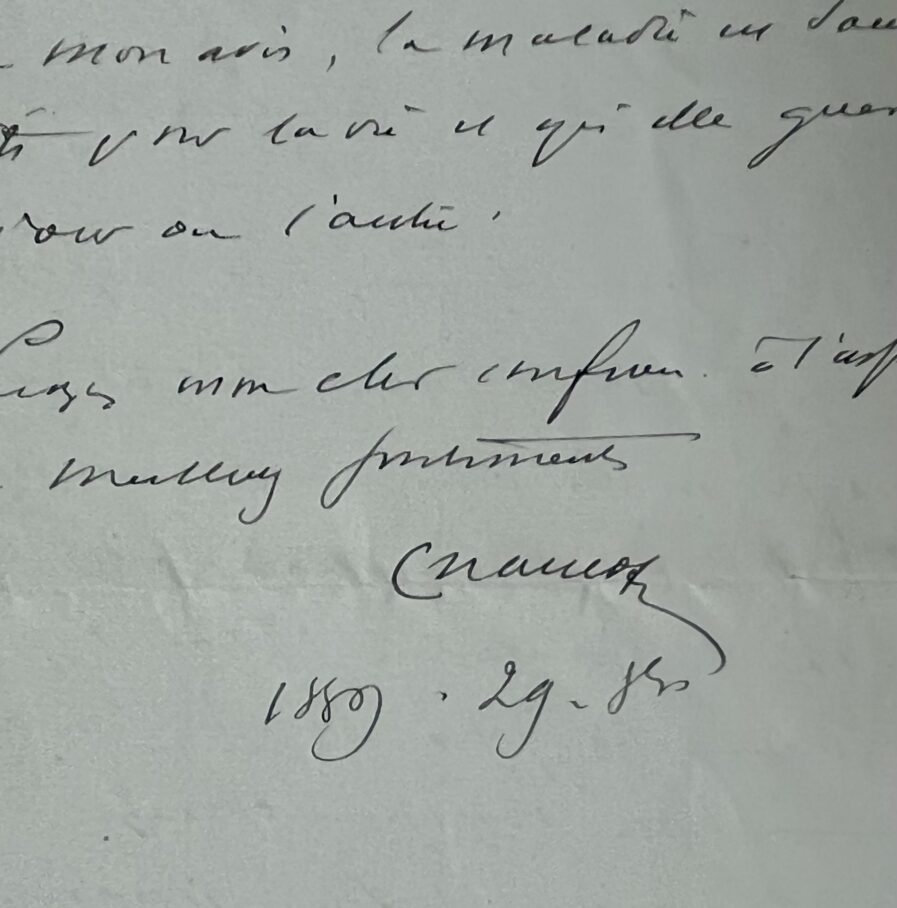 mon avis, la maladie est sans
pour la vie et qu'elle guer
jour ou l'autre.
Croyez mon cher confrère. à l'ass
meilleurs sentiments
Charcot
1889. 29. 8bre